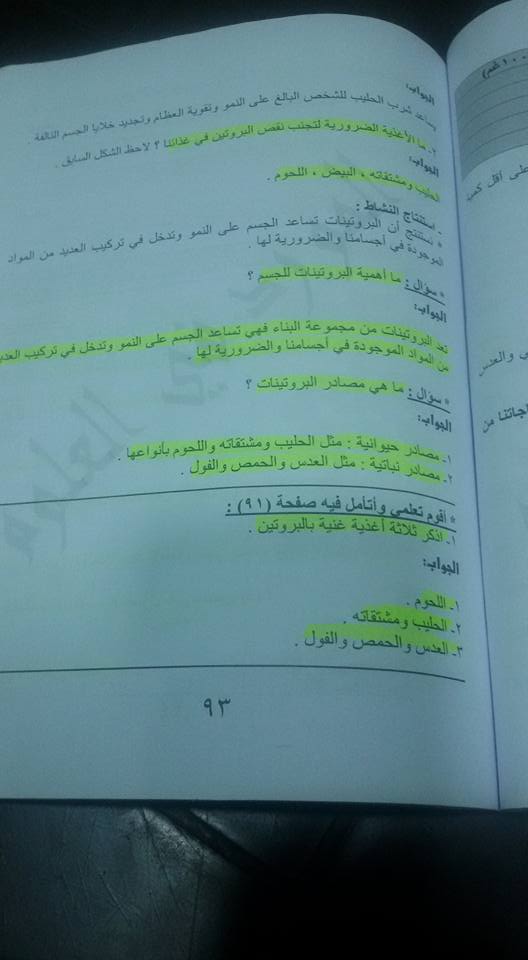 الجواب:
يساعد شرب الحليب للشخص البالغ على النمو وتقوية العظام وتجديد خلايا الجسم التالفة .
٢. ما الأغذية الضرورية لتجنب نقص البروتين في غذائنا ؟ لاحظ الشكل السابق .
الجواب:
الحليب ومشتقاته ، البيض ، اللحوم .
- استنتاج النشاط :
* أستنتج أن البروتينات تساعد الجسم على النمو وتدخل في تركيب العديد من المواد
الموجودة في أجسامنا والضرورية لها .
* سؤال : ما أهمية البروتينات للجسم ؟
الجواب:
تعد البروتينات من مجموعة البناء فهي تساعد الجسم على النمو وتدخل في تركيب العديد
من المواد الموجودة في أجسامنا والضرورية لها .
* سؤال : ما هي مصادر البروتينات ؟
الجواب:
١- مصادر حيوانية : مثل الحليب ومشتقاته واللحوم بأنواعها .
٢- مصادر نباتية : مثل العدس والحمص والفول .
* أقوم تعلمي وأتأمل فيه صفحة (٩١) :
١- اذكر ثلاثة أغذية غنية بالبروتين .
الجواب:
١- اللحوم .
٢- الحليب ومشتقاته .
٣- العدس والحمص والفول .
٩٣
١٠٠ غم)
على أقل كمية
ي والعدس
اجاتنا من